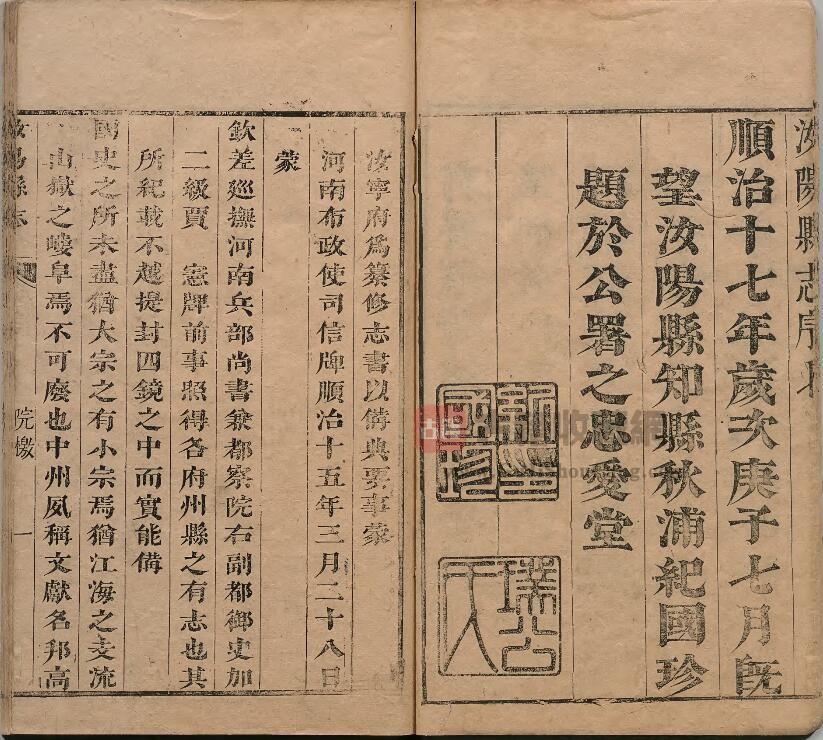 汝陽縣志序
順治十七年歲次庚子七月既
望汝陽縣知縣秋浦紀國珍
題於公署之忠愛堂
汝寧府爲纂修志書以備典要事蒙
河南布政使司信牌順治十五年三月二十八日
蒙
欽差廵撫河南兵部尚書兼都察院右副都御史加
二級賈 憲牌前事照得各府州縣之有志也其
所紀載不越提封四鏡之中而實能備
國史之所未盡猶大宗之有小宗焉猶江海之支流
山嶽之嶁阜焉不可廢也中州夙稱文獻名邦高
汝陽縣志 院檄 一